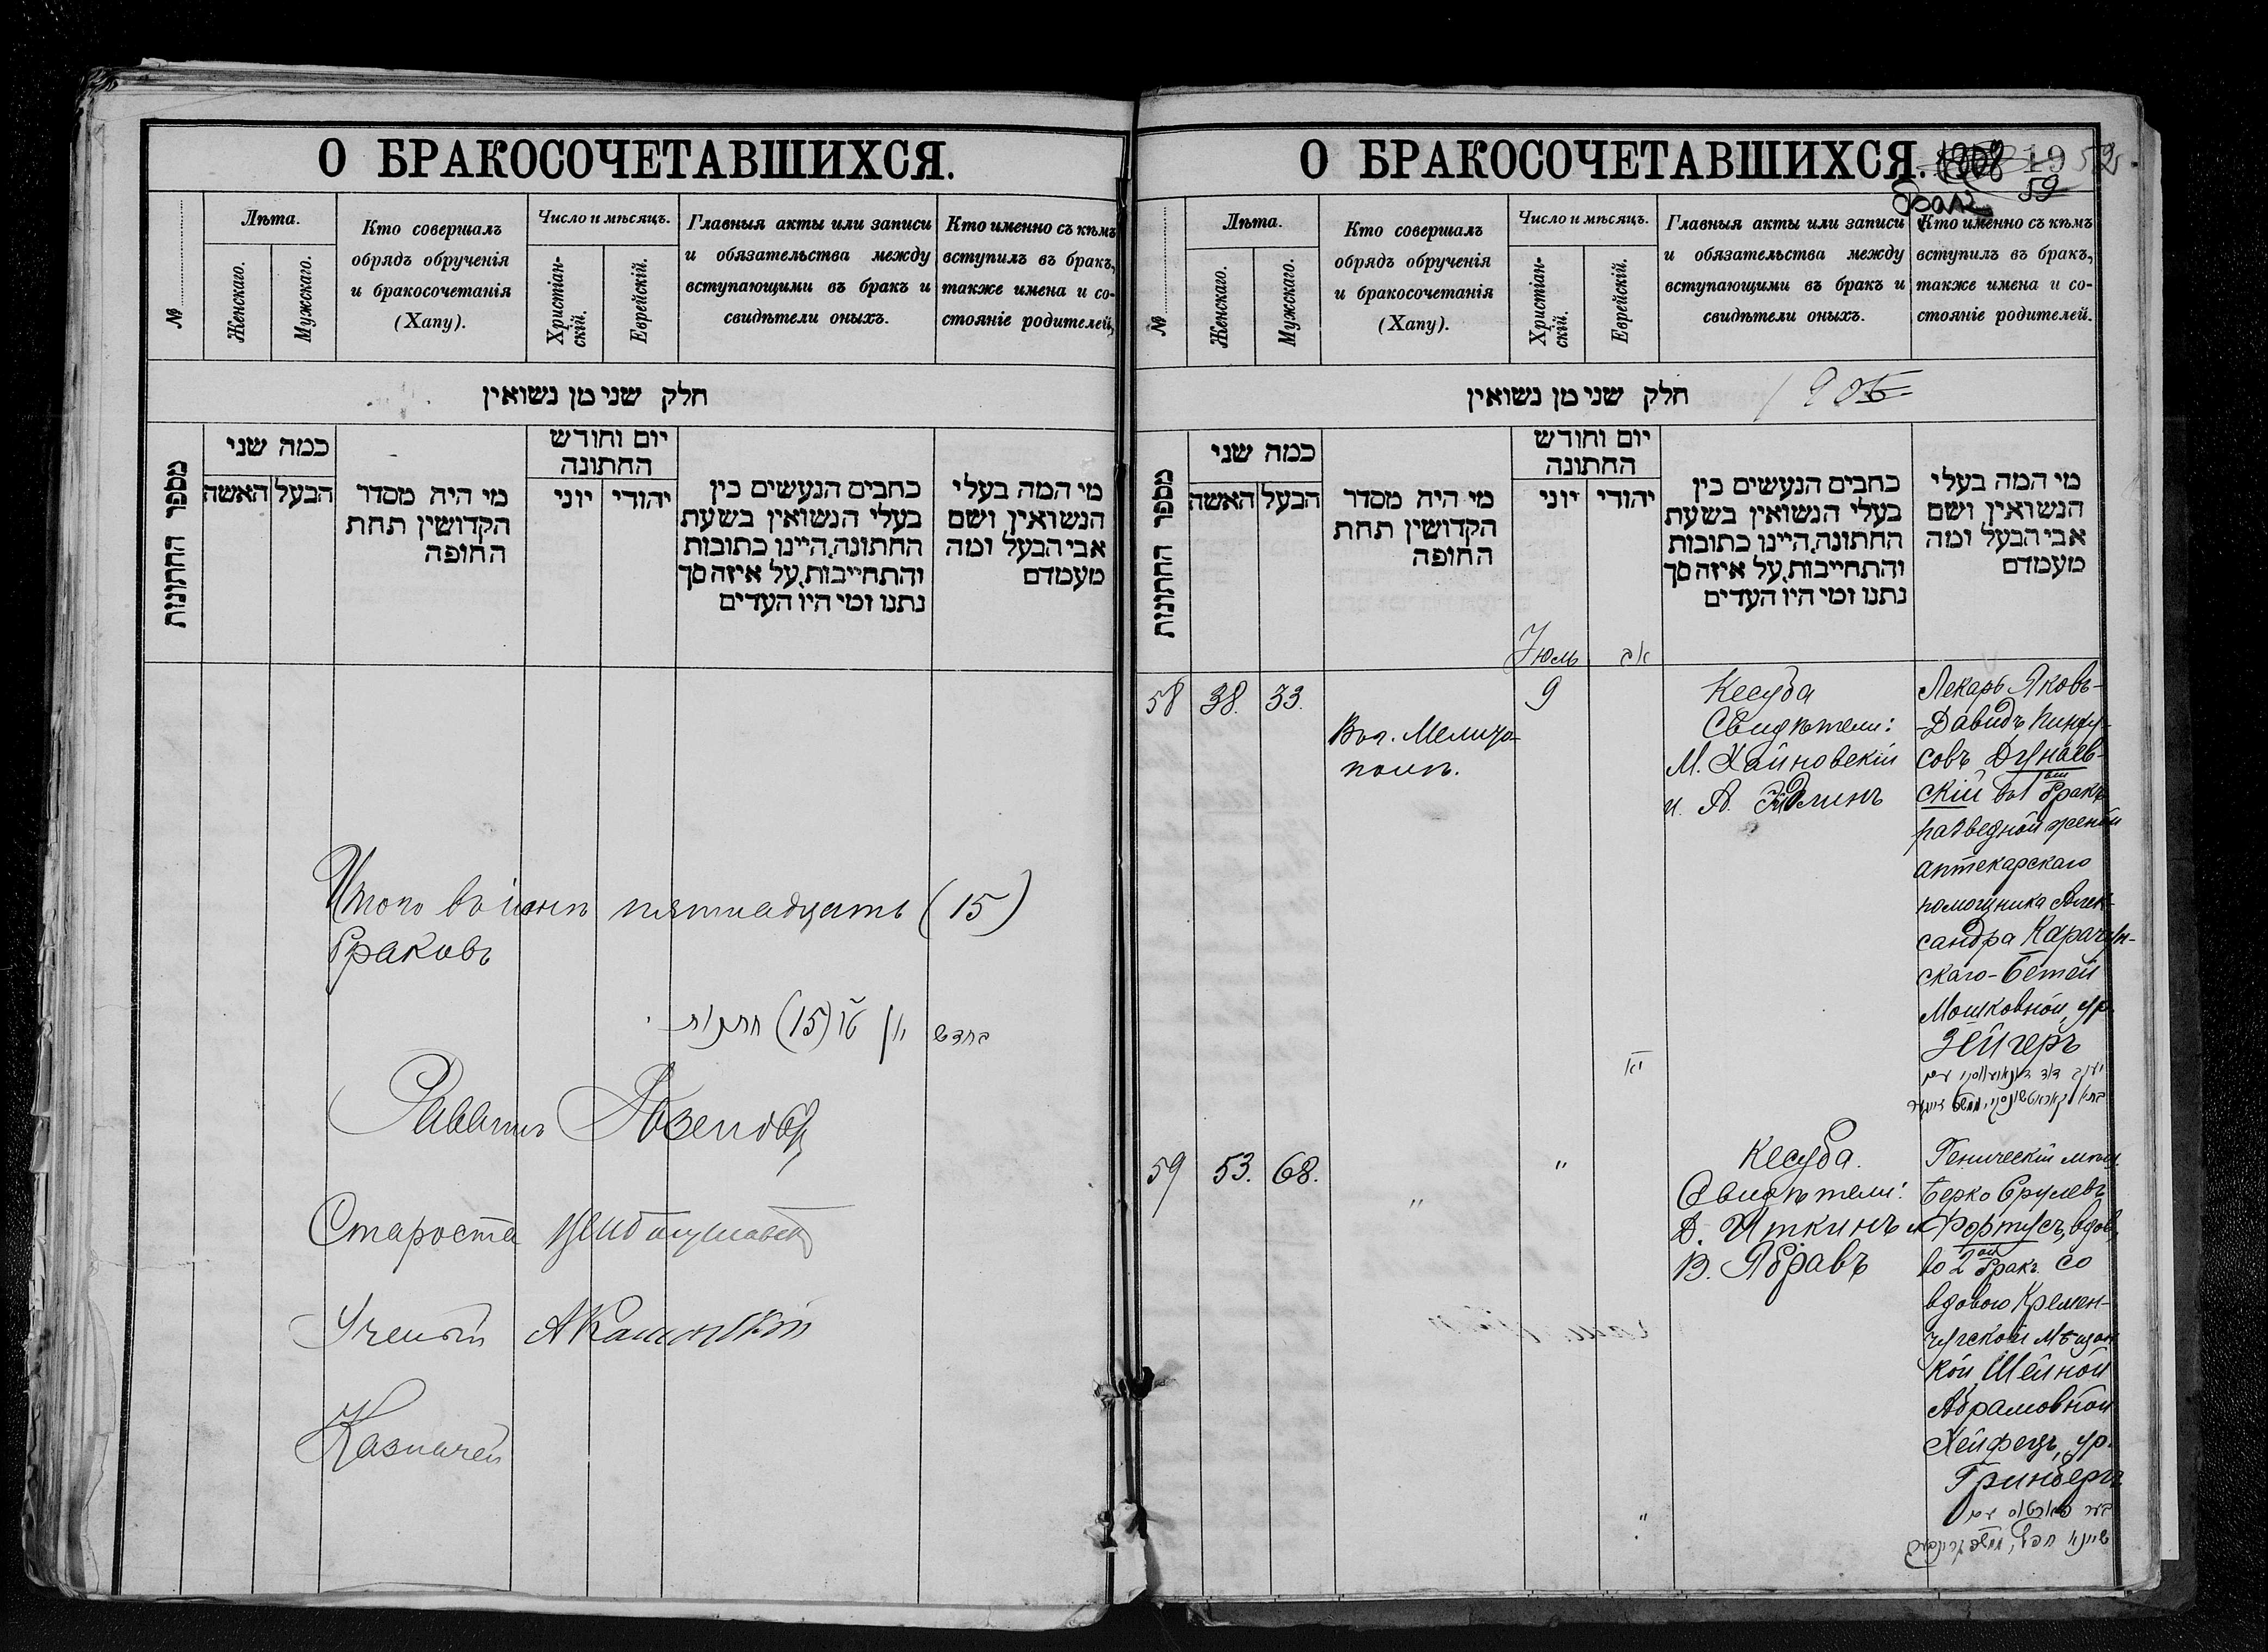 О БРАКОСОЧЕТАВШИХСЯ.
№
Лѣта.
Женскаго.
Мужскаго.
Кто совершалъ
обрядъ обрученія
и бракосочетанія
(Хапу).
Число и мѣсяцъ.
Христіан-
скій.
Еврейскій.
Главныя акты или записи
и обязательства между
вступающими въ бракъ и
свидѣтели оныхъ.
Кто именно съ кѣмъ
вступилъ въ бракъ,
также имена и со-
стояніе родителей,
חלק שני מן נשואין
מספר החתונות
כמה שני
האשה
הבעל
מי היה מסדר
הקדושין תחת
החופה
יום וחודש
החתונה
יוני
יהודי
כתבים הנעשים בין
בעלי הנשואין בשעת
החתונה, היינו כתובות
והתחייבות, על איזה סך
נתנו ומי היו העדים
מי המה בעלי
הנשואין ושם
אבי הבעל ומה
מעמדם
Итого въ іюнѣ пятнадцать (15)
браковъ
בחדש יוני ט״ו (15) חתונות
Раввинъ
Староста
Ученый
Казначей
О БРАКОСОЧЕТАВШИХСЯ.
1908
19
52
59
№
Лѣта.
Женскаго.
Мужскаго.
Кто совершалъ
обрядъ обрученія
и бракосочетанія
(Хапу).
Число и мѣсяцъ.
Христіан-
скій.
Еврейскій.
Главныя акты или записи
и обязательства между
вступающими въ бракъ и
свидѣтели оныхъ.
Кто именно съ кѣмъ
вступилъ въ бракъ,
также имена и со-
стояніе родителей.
חלק שני מן נשואין
מספר החתונות
כמה שני
האשה
הבעל
מי היה מסדר
הקדושין תחת
החופה
יום וחודש
החתונה
יוני
יהודי
כתבים הנעשים בין
בעלי הנשואין בשעת
החתונה, היינו כתובות
והתחייבות, על איזה סך
נתנו ומי היו העדים
מי המה בעלי
הנשואין ושם
אבי הבעל ומה
מעמדם
Іюль
אב
58
38.
33.
Въ г. Мелито-
полѣ.
9
Кесуба
Свидѣтели:
М. Хайновскій
и А.
Лекарь Яковъ-
-Давидъ Пинху-
совъ Дунаев-
скій въ 1 ый бракъ
разведной женой
аптекарскаго
помощника Алек-
сандра Карачун-
скаго-Бетей
Мошковной, ур.
Зейгеръ
יא
יעקב דוד דונאיעווסקי עם
59
53.
68.
"
"
Кесуба.
Свидѣтели:
Д. Иткинъ и
В. Ябровъ
Геническій мѣщ.
Берко Срулевъ
Фортусъ, вдов.
во 2 ой бракъ со
вдовою Кремен-
чугской мѣщан
кой Шейной
Абрамовной
Хейфецъ, ур.
Гринбергъ
"